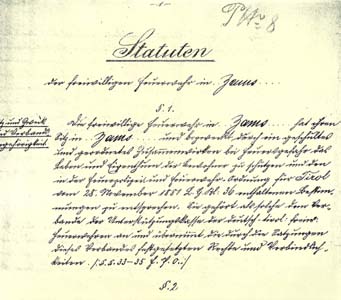 P Nr 8
Statuten
der freiwilligen Feuerwehr in Zams
§ 1.
Sitz und Zweck
und Verbands-
angehörigkeit.
Die freiwillige Feuerwehr in Zams hat ihren
Sitz in Zams und bezweckt, durch ein geschultes
und geordnetes Zusammenwirken bei Feuersgefahr das
Leben und Eigenthum der Bewohner zu schützen und den
in der Feuerpolizei und Feuerwehr-Ordnung für Tirol
vom 28. November 1881 L. G. Bl. 36 enthaltenen Bestim-
mungen zu entsprechen. Sie gehört als solche dem Ver-
bande der Unterstützungskasse der deutsch-tirol. freiw.
Feuerwehren an und übernimmt die durch die Satzungen
dieses Verbandes festgesetzten Rechte und Verbindlich-
keiten. (§. §. 33-35 F. P. O.)
§. 2.